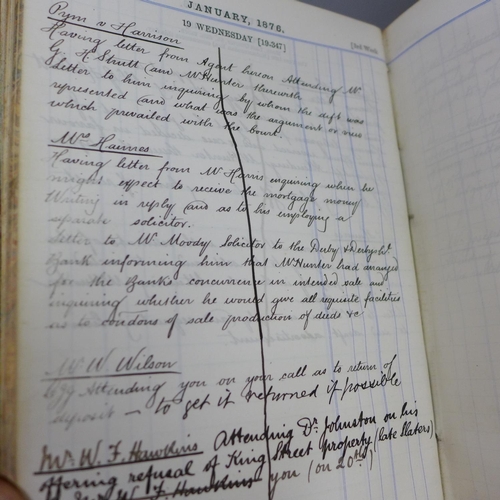 JANUARY, 1876.
19 WEDNESDAY [19-347]
Pym v Harrison
Having letter from Agent hereon Attending Mr
G. H. Strutt and Mr Hunter therewith
Letter to him inquiring by whom the deft was
represented and what was the argument or view
which prevailed with the Court.
Mrs Haimes
Having letter from Mr Harris enquiring when he
might expect to receive the mortgage money
Writing in reply and as to his employing a
separate solicitor.
Letter to Mr Moody Solicitor to the Derby & Derbysh
Bank informing him that Mr Hunter had arranged
for the Banks concurrence in intended sale and
inquiring whether he would give all requisite facilities
as to condons of sale production of deeds &c
Mr W Wilson
Attending you on your call as to return of
deposit — to get it returned if possible
Mr. W. F. Hawkins Attending Dr. Johnston on his
offering refusal of King Street property (late Slaters)
W F Hawkins you (on 20th)